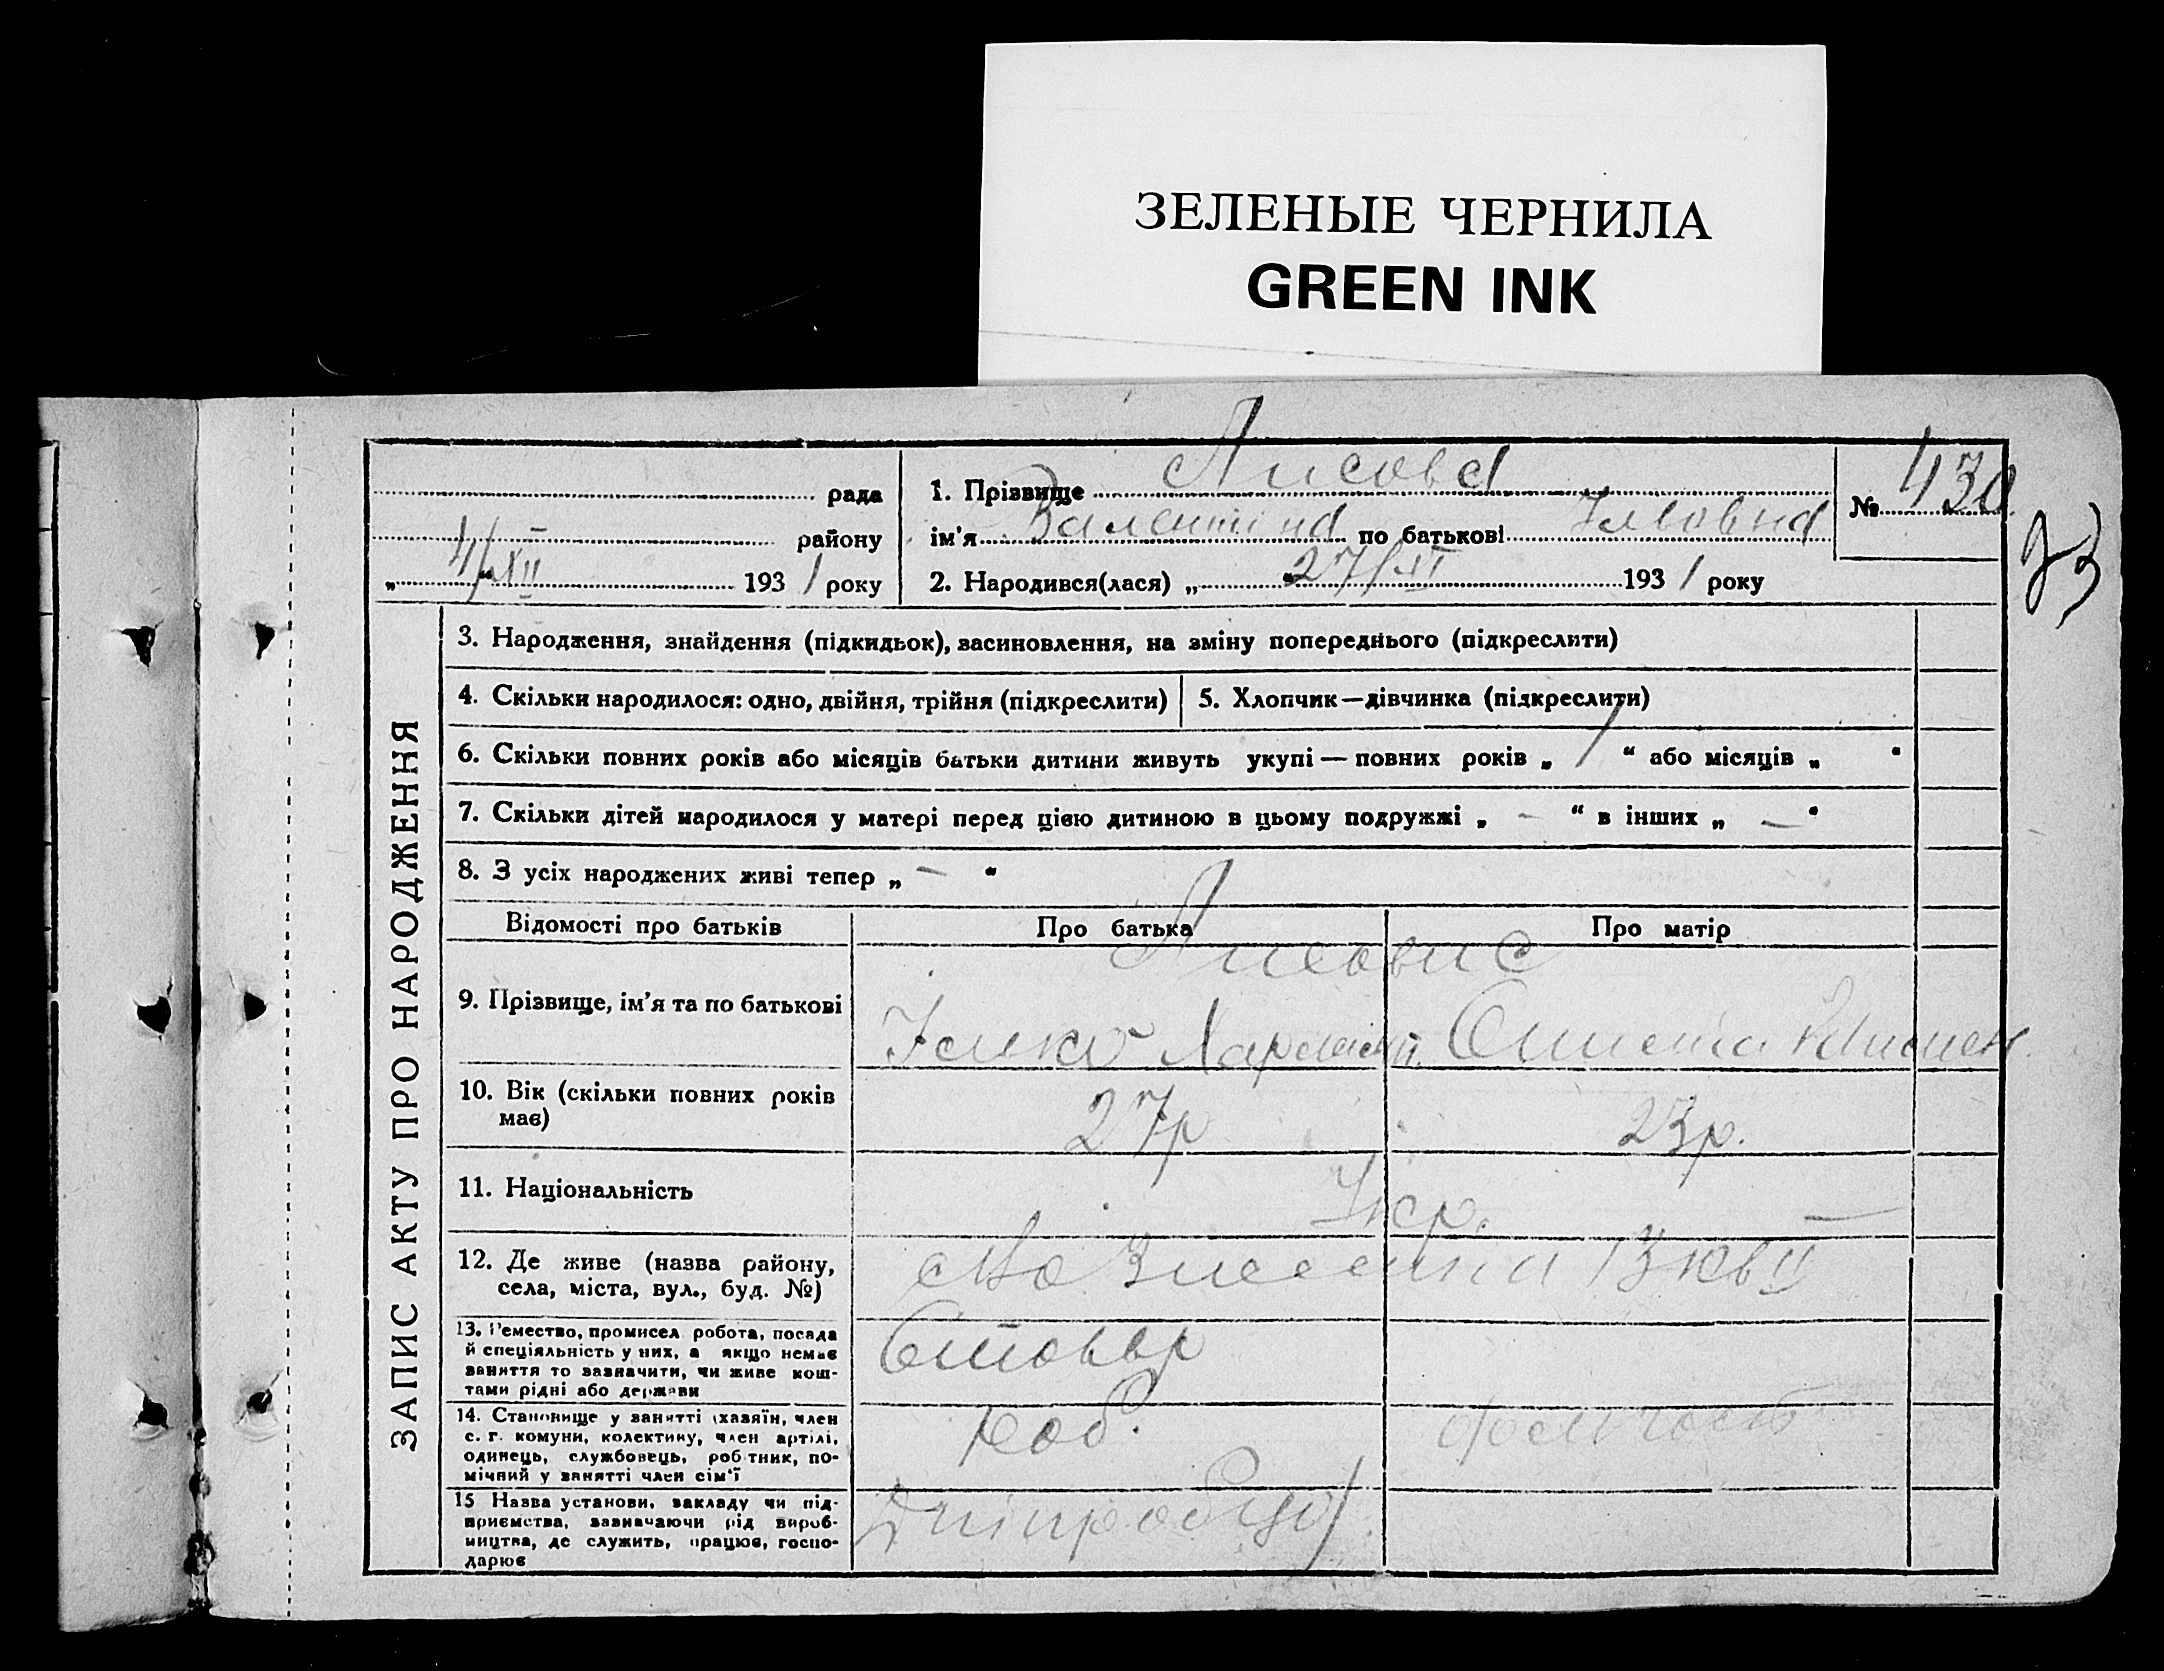 ЗЕЛЕНЫЕ ЧЕРНИЛА
GREEN INK
рада
району
„ 4/XII 1931 року
1. Прізвище Лисова
ім'я Валентина по батькові Ільовна
2. Народився(лася) „ 27/XI 1931 року
№ 430
23
ЗАПИС АКТУ ПРО НАРОДЖЕННЯ
3. Народження, знайдення (підкидьок), засиновлення, на зміну попереднього (підкреслити)
4. Скільки народилося: одно, двійня, трійня (підкреслити)
5. Хлопчик—дівчинка (підкреслити)
6. Скільки повних років або місяців батьки дитини живуть укупі — повних років „ 1 “ або місяців „ “
7. Скільки дітей народилося у матері перед цією дитиною в цьому подружжі „ — “ в інших „ — “
8. З усіх народжених живі тепер „ — “
Відомості про батьків Про батька Про матір
9. Прізвище, ім'я та по батькові
Лисовис
10. Вік (скільки повних років має)
27р 23р.
11. Національність
Укр. —
12. Де живе (назва району, села, міста, вул., буд. №)
13. Ремество, промисел робота, посада
й спеціяльність у них, а якщо немає
заняття то зазначити, чи живе кош-
тами рідні або держави
Столяр
14. Становище у занятті (хазяїн, член
с. г. комуни, колективу, член артілі,
одинець, службовець, робітник, по-
мічний у занятті член сім'ї
Роб.
15 Назва установи, закладу чи під-
приємства, зазначаючи рід вироб-
ництва, де служить, працює, госпо-
дарює